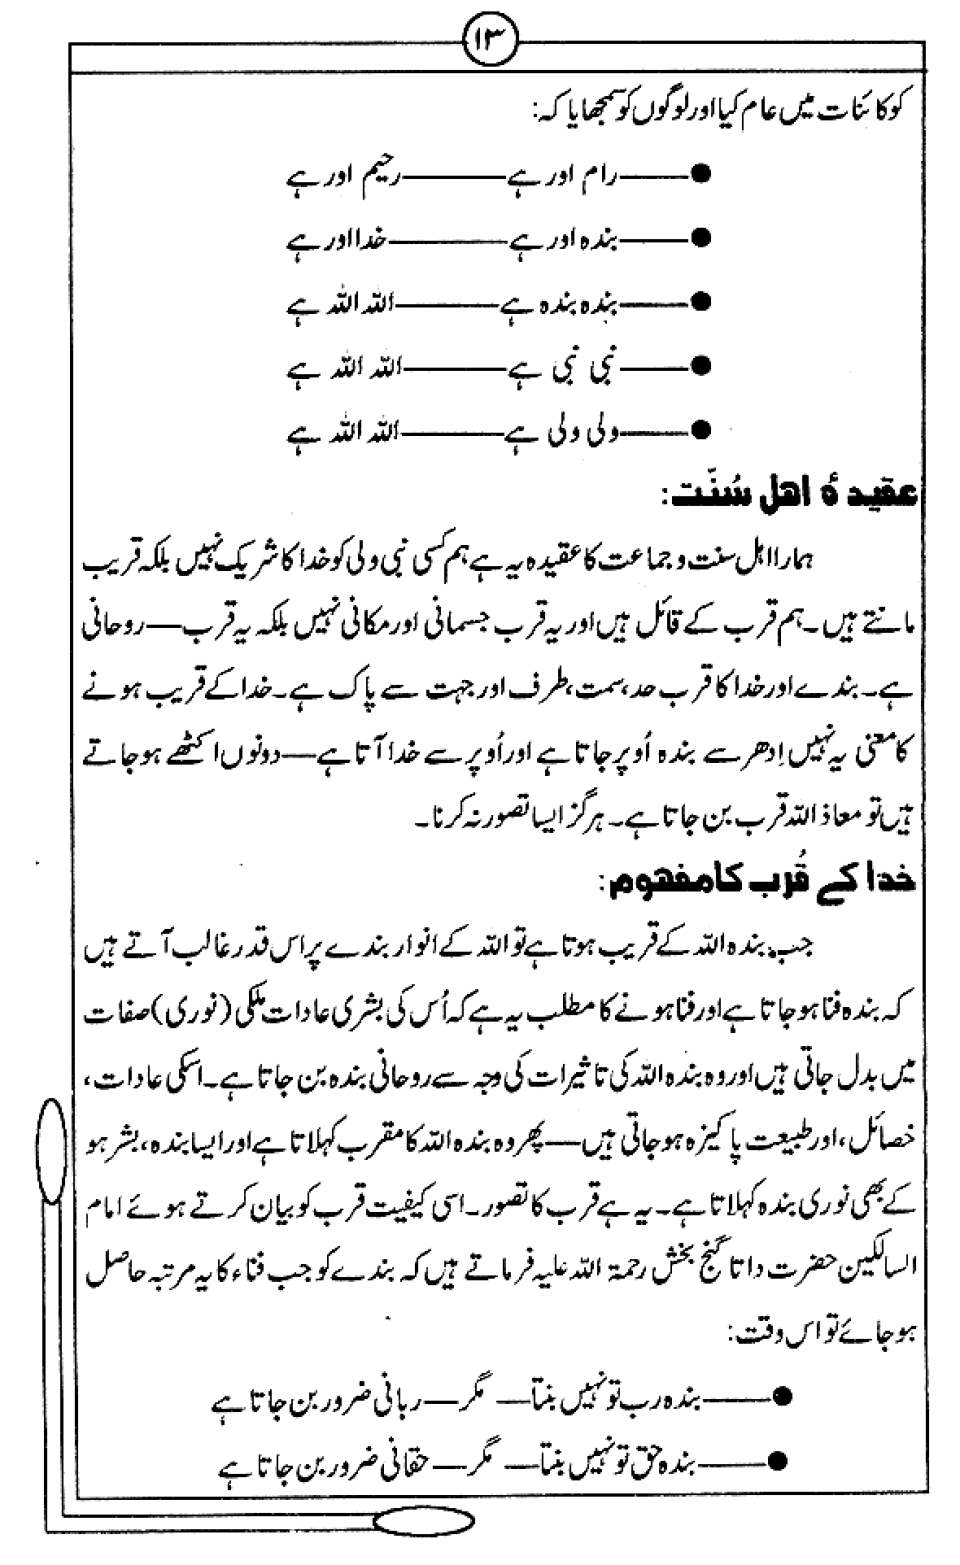 ۱۳
کو کائنات میں عام کیا اور لوگوں کو سمجھایا کہ:
●——رام اور ہے———رحیم اور ہے
●——بندہ اور ہے———خدا اور ہے
●——بندہ بندہ ہے———اللہ اللہ ہے
●——نبی نبی ہے———اللہ اللہ ہے
●——ولی ولی ہے———اللہ اللہ ہے
عقیدۂ اھل سُنّت:
ہمارا اہل سنت و جماعت کا عقیدہ یہ ہے ہم کسی نبی ولی کو خدا کا شریک نہیں بلکہ قریب
مانتے ہیں۔ ہم قرب کے قائل ہیں اور یہ قرب جسمانی اور مکانی نہیں بلکہ یہ قرب—روحانی
ہے۔ بندے اور خدا کا قرب حد، سمت، طرف اور جہت سے پاک ہے۔ خدا کے قریب ہونے
کا معنی یہ نہیں اِدھر سے بندہ اُوپر جاتا ہے اور اُوپر سے خدا آتا ہے—دونوں اکٹھے ہو جاتے
ہیں تو معاذ اللہ قرب بن جاتا ہے۔ ہرگز ایسا تصور نہ کرنا۔
خدا کے قُرب کا مفھوم:
جب بندہ اللہ کے قریب ہوتا ہے تو اللہ کے انوار بندے پر اس قدر غالب آتے ہیں
کہ بندہ فنا ہو جاتا ہے اور فنا ہونے کا مطلب یہ ہے کہ اُس کی بشری عادات ملکی (نوری) صفات
میں بدل جاتی ہیں اور وہ بندہ اللہ کی تاثیرات کی وجہ سے روحانی بندہ بن جاتا ہے۔ اسکی عادات،
خصائل، اور طبیعت پاکیزہ ہو جاتی ہیں—پھر وہ بندہ اللہ کا مقرب کہلاتا ہے اور ایسا بندہ، بشر ہو
کے بھی نوری بندہ کہلاتا ہے۔ یہ ہے قرب کا تصور۔ اسی کیفیت قرب کو بیان کرتے ہوئے امام
السالکین حضرت داتا گنج بخش رحمۃ اللہ علیہ فرماتے ہیں کہ بندے کو جب فناء کا یہ مرتبہ حاصل
ہو جائے تو اس وقت:
●——بندہ رب تو نہیں بنتا— مگر—ربانی ضرور بن جاتا ہے
●——بندہ حق تو نہیں بنتا— مگر—حقانی ضرور بن جاتا ہے